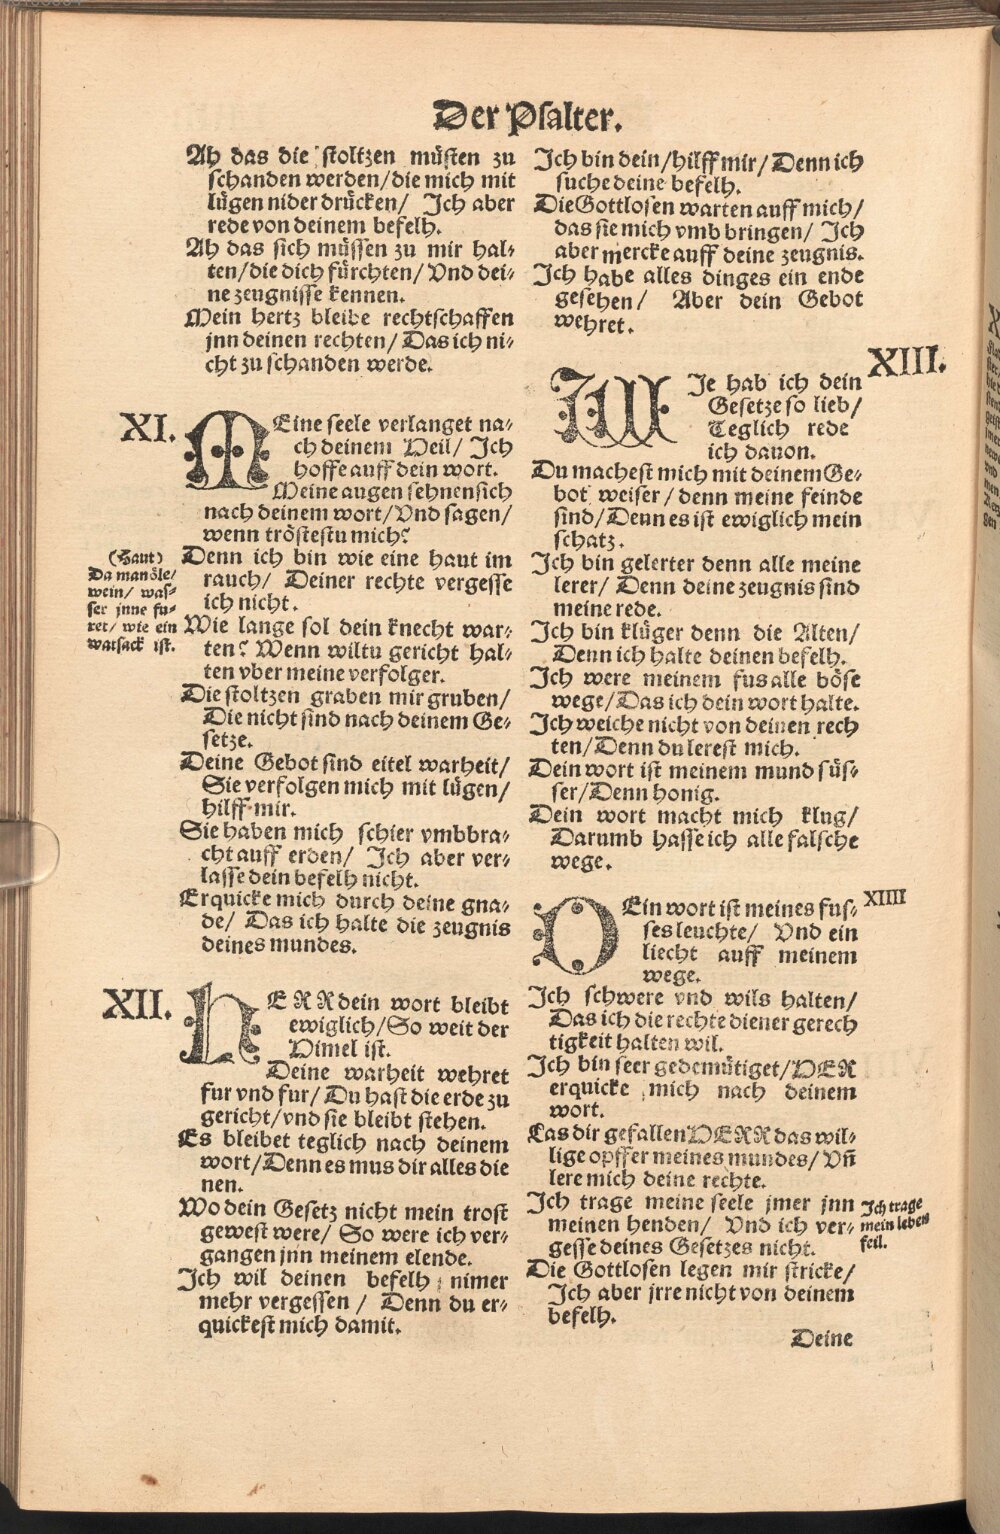 Der Psalter.
Ah das die stoltzen müsten zu
schanden werden/die mich mit
lügen nider drücken/ Ich aber
rede von deinem befelh.
Ah das sich müssen zu mir hal⸗
ten/die dich fürchten/ Vnd dei⸗
ne zeugnisse kennen.
Mein hertz bleibe rechtschaffen
jnn deinen rechten/ Das ich ni⸗
cht zu schanden werde.
XI.
MEine seele verlanget na⸗
ch deinem Heil/ Ich
hoffe auff dein wort.
Meine augen sehnen sich
nach deinem wort/ Vnd sagen/
wenn tröstestu mich?
(Haut)
Da man öle/
wein/ was⸗
ser jnne fu⸗
ret/ wie ein
watsack ist.
Denn ich bin wie eine haut im
rauch/ Deiner rechte vergesse
ich nicht.
Wie lange sol dein knecht war⸗
ten? Wenn wiltu gericht hal⸗
ten vber meine verfolger.
Die stoltzen graben mir gruben/
Die nicht sind nach deinem Ge⸗
setze.
Deine Gebot sind eitel warheit/
Sie verfolgen mich mit lügen/
hilff mir.
Sie haben mich schier vmbbra⸗
cht auff erden/ Ich aber ver⸗
lasse dein befelh nicht.
Erquicke mich durch deine gna⸗
de/ Das ich halte die zeugnis
deines mundes.
XII.
HERR dein wort bleibt
ewiglich/So weit der
Himel ist.
Deine warheit wehret
fur vnd fur/ Du hast die erde zu
gericht/vnd sie bleibt stehen.
Es bleibet teglich nach deinem
wort/Denn es mus dir alles die
nen.
Wo dein Gesetz nicht mein trost
gewest were/ So were ich ver⸗
gangen jnn meinem elende.
Ich wil deinen befelh nimer
mehr vergessen / Denn du er⸗
quickest mich damit.
Ich bin dein/hilff mir/ Denn ich
suche deine befelh.
Die Gottlosen warten auff mich/
das sie mich vmb bringen/ Ich
aber mercke auff deine zeugnis.
Ich habe alles dinges ein ende
gesehen/ Aber dein Gebot
wehret.
XIII.
WIe hab ich dein
Gesetze so lieb/
Teglich rede
ich dauon.
Du machest mich mit deinem Ge⸗
bot weiser / denn meine feinde
sind/ Denn es ist ewiglich mein
schatz.
Ich bin gelerter denn alle meine
lerer/ Denn deine zeugnis sind
meine rede.
Ich bin klüger denn die Alten/
Denn ich halte deinen befelh.
Ich were meinem fus alle böse
wege/Das ich dein wort halte.
Ich weiche nicht von deinen rech
ten/Denn du lerest mich.
Dein wort ist meinem mund süs⸗
ser/Denn honig.
Dein wort macht mich klug/
Darumb hasse ich alle falsche
wege.
XIIII
DEin wort ist meines fus⸗
ses leuchte/ Vnd ein
liecht auff meinem
wege.
Ich schwere vnd wils halten/
Das ich die rechte diener gerech
tigkeit halten wil.
Ich bin seer gedemütiget/HERR
erquicke mich nach deinem
wort.
Las dir gefallen HERR das wil⸗
lige opffer meines mundes/ Vñ
lere mich deine rechte.
Ich trage meine seele jmer jnn
meinen henden/ Vnd ich ver⸗
gesse deines Gesetzes nicht.
Ich trage
mein leben
feil.
Die Gottlosen legen mir stricke/
Ich aber jrre nicht von deinem
befelh.
Deine